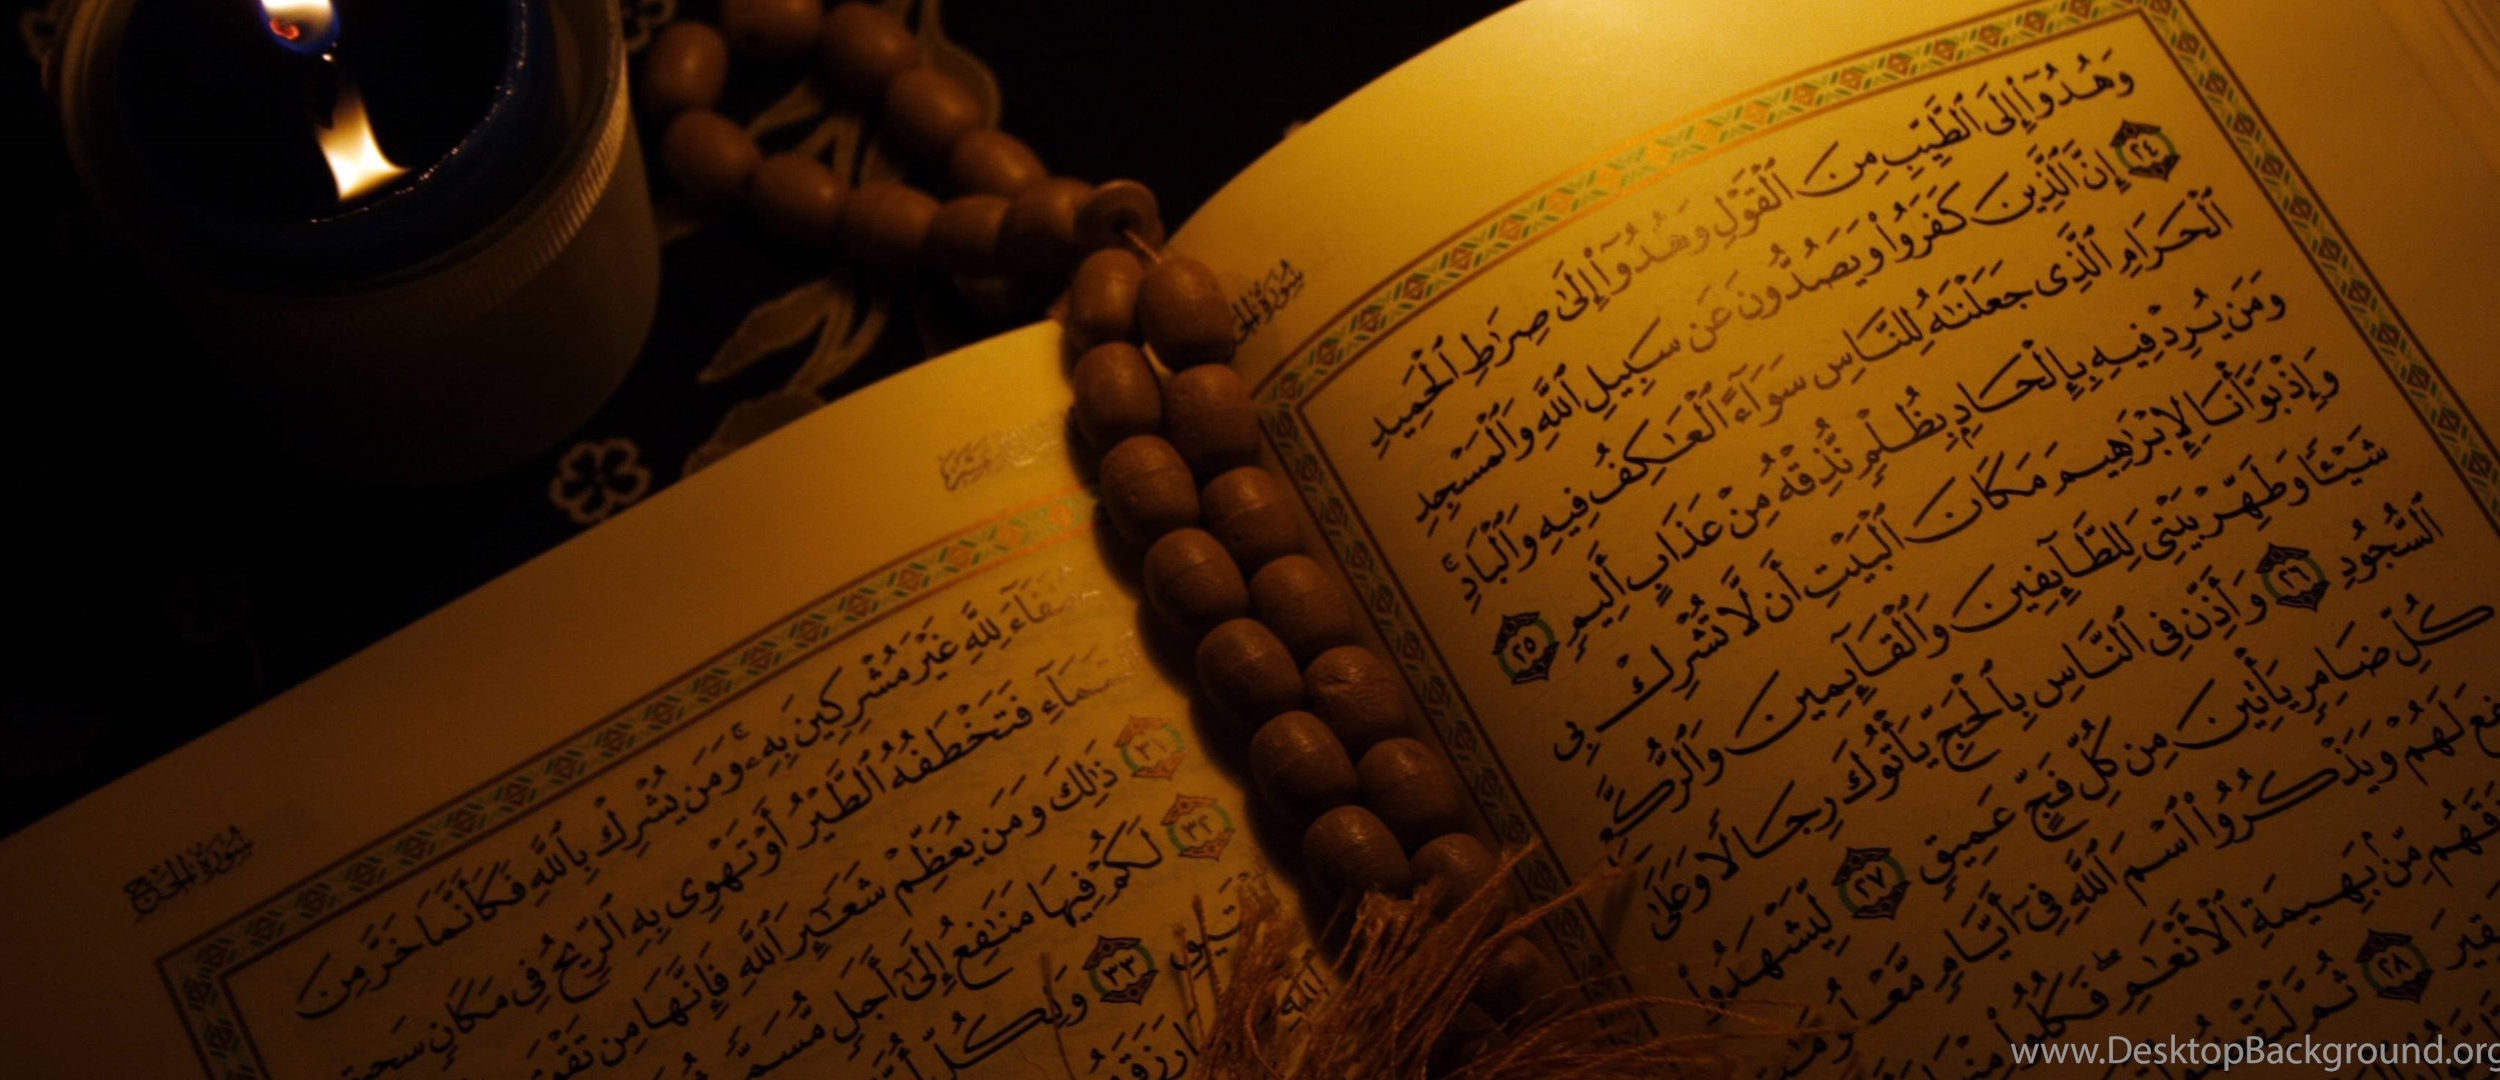 سورة الحج
وَهُدُوٓا۟ إِلَى ٱلطَّيِّبِ مِنَ ٱلْقَوْلِ وَهُدُوٓا۟ إِلَىٰ صِرَٰطِ ٱلْحَمِيدِ
٢٤ إِنَّ ٱلَّذِينَ كَفَرُوا۟ وَيَصُدُّونَ عَن سَبِيلِ ٱللَّهِ وَٱلْمَسْجِدِ
ٱلْحَرَامِ ٱلَّذِى جَعَلْنَٰهُ لِلنَّاسِ سَوَآءً ٱلْعَٰكِفُ فِيهِ وَٱلْبَادِ ۚ
وَمَن يُرِدْ فِيهِ بِإِلْحَادٍۭ بِظُلْمٍ نُّذِقْهُ مِنْ عَذَابٍ أَلِيمٍ ٢٥
وَإِذْ بَوَّأْنَا لِإِبْرَٰهِيمَ مَكَانَ ٱلْبَيْتِ أَن لَّا تُشْرِكْ بِى
شَيْـًٔا وَطَهِّرْ بَيْتِىَ لِلطَّآئِفِينَ وَٱلْقَآئِمِينَ وَٱلرُّكَّعِ
ٱلسُّجُودِ ٢٦ وَأَذِّن فِى ٱلنَّاسِ بِٱلْحَجِّ يَأْتُوكَ رِجَالًا وَعَلَىٰ
كُلِّ ضَامِرٍ يَأْتِينَ مِن كُلِّ فَجٍّ عَمِيقٍ ٢٧ لِّيَشْهَدُوا۟
لَهُمْ وَيَذْكُرُوا۟ ٱسْمَ ٱللَّهِ فِىٓ أَيَّامٍ مَّعْلُومَٰتٍ
مِّنۢ بَهِيمَةِ ٱلْأَنْعَٰمِ ۖ فَكُلُوا۟ مِنْهَا
٢٨ ثُمَّ لْيَقْضُوا۟
سورة الحج
لِلَّهِ غَيْرَ مُشْرِكِينَ بِهِۦ ۚ وَمَن يُشْرِكْ بِٱللَّهِ فَكَأَنَّمَا خَرَّ مِنَ
ٱلسَّمَآءِ فَتَخْطَفُهُ ٱلطَّيْرُ أَوْ تَهْوِى بِهِ ٱلرِّيحُ فِى مَكَانٍ سَحِيقٍ
٣١ ذَٰلِكَ وَمَن يُعَظِّمْ شَعَٰٓئِرَ ٱللَّهِ فَإِنَّهَا مِن تَقْوَى
٣٢ لَكُمْ فِيهَا مَنَٰفِعُ إِلَىٰٓ أَجَلٍ مُّسَمًّى
٣٣ وَلِكُلِّ
www.DesktopBackground.org